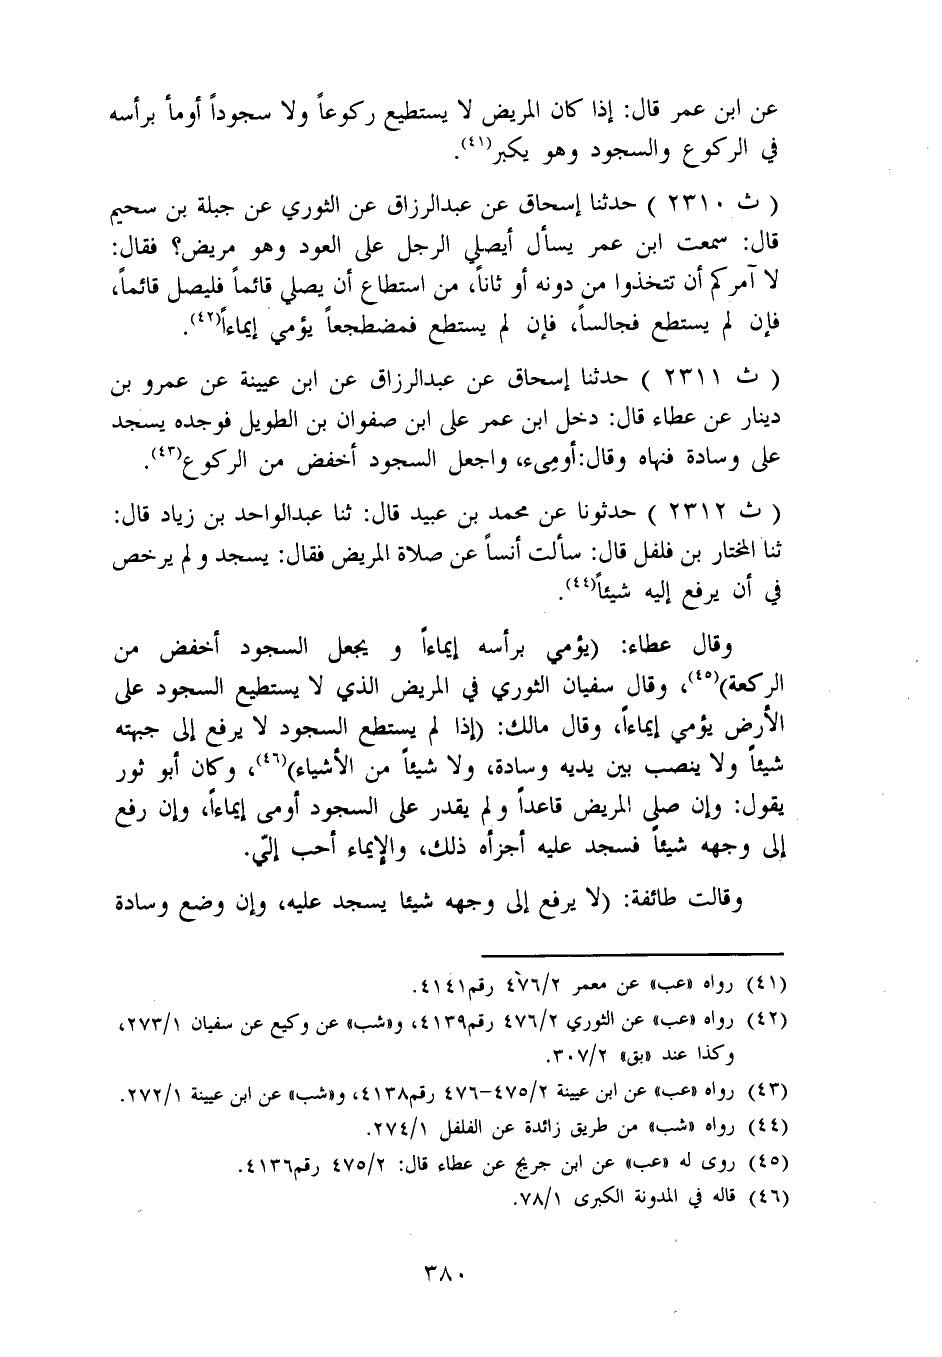 عن ابن عمر قال: إذا كان المريض لا يستطيع ركوعاً ولا سجوداً أومأ برأسه
في الركوع والسجود وهو يكبر(٤١).
( ث ٢٣١٠ ) حدثنا إسحاق عن عبدالرزاق عن الثوري عن جبلة بن سحيم
قال: سمعت ابن عمر يسأل أيصلي الرجل على العود وهو مريض؟ فقال:
لا آمركم أن تتخذوا من دونه أو ثاناً، من استطاع أن يصلي قائماً فليصل قائماً،
فإن لم يستطع فجالساً، فإن لم يستطع فمضطجعاً يؤمي إيماءاً(٤٢).
( ث ٢٣١١ ) حدثنا إسحاق عن عبدالرزاق عن ابن عيينة عن عمرو بن
دينار عن عطاء قال: دخل ابن عمر على ابن صفوان بن الطويل فوجده يسجد
على وسادة فنهاه وقال:أومِىء، واجعل السجود أخفض من الركوع(٤٣).
( ث ٢٣١٢ ) حدثونا عن محمد بن عبيد قال: ثنا عبدالواحد بن زياد قال:
ثنا المختار بن فلفل قال: سألت أنساً عن صلاة المريض فقال: يسجد ولم يرخص
في أن يرفع إليه شيئاً(٤٤).
وقال عطاء: (يؤمي برأسه إيماءاً و يجعل السجود أخفض من
الركعة)(٤٥)، وقال سفيان الثوري في المريض الذي لا يستطيع السجود على
الأرض يؤمي إيماءاً، وقال مالك: (إذا لم يستطع السجود لا يرفع إلى جبهته
شيئاً ولا ينصب بين يديه وسادة، ولا شيئاً من الأشياء)(٤٦)، وكان أبو ثور
يقول: وإن صلى المريض قاعداً ولم يقدر على السجود أومى إيماءاً، وإن رفع
إلى وجهه شيئاً فسجد عليه أجزأه ذلك، والإيماء أحب إليّ.
وقالت طائفة: (لا يرفع إلى وجهه شيئا يسجد عليه، وإن وضع وسادة
(٤١) رواه «عب» عن معمر ٤٧٦/٢ رقم٤١٤١.
(٤٢) رواه «عب» عن الثوري ٤٧٦/٢ رقم٤١٣٩، و«شب» عن وكيع عن سفيان ٢٧٣/١،
وكذا عند «بق» ٣٠٧/٢.
(٤٣) رواه «عب» عن ابن عيينة ٤٧٥/٢–٤٧٦ رقم٤١٣٨، و«شب» عن ابن عيينة ٢٧٢/١.
(٤٤) رواه «شب» من طريق زائدة عن الفلفل ٢٧٤/١.
(٤٥) روى له «عب» عن ابن جريج عن عطاء قال: ٤٧٥/٢ رقم٤١٣٦.
(٤٦) قاله في المدونة الكبرى ٧٨/١.
٣٨٠